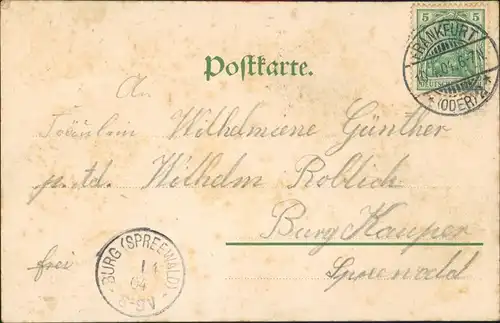 5
FRANKFURT
* (ODER) 2 *
Postkarte.
An
Fräulein Wilhelmiene Günther
p. td. Wilhelm Roblich
Burg Kauper
frei
Spreewald
BURG (SPREEWALD)
04